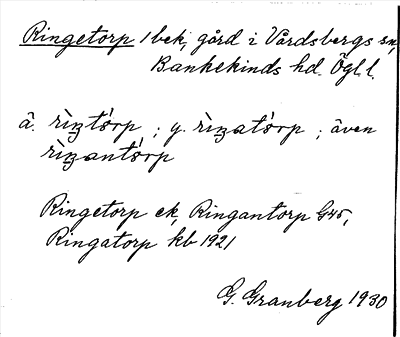 Ringetorp /bek, gård i Vårdsbergs sn,
Bankekinds hd. Ögl. l.
ä. rìŋtórp ; y. rìŋatórp ; även
rìŋantórp
Ringetorp ek, Ringantorp G45,
Ringatorp kb 1921
G. Granberg 1930